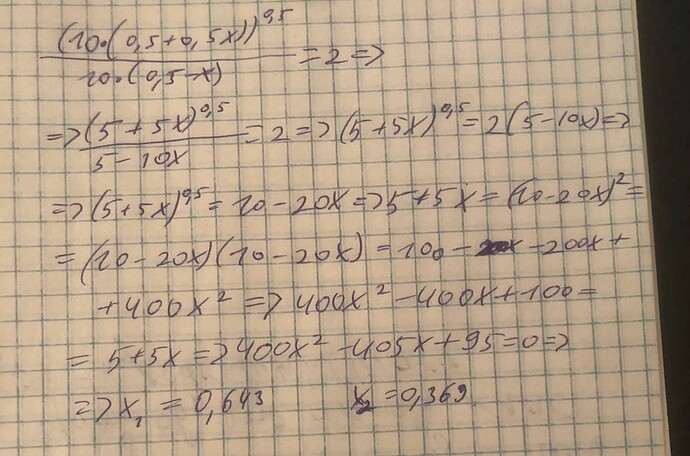 (10·(0,5+0,5x))^0,5 / 10·(0,5-x) = 2 =>
=> (5+5x)^0,5 / 5-10x = 2 => (5+5x)^0,5 = 2(5-10x) =>
=> (5+5x)^0,5 = 10-20x => 5+5x = (10-20x)^2 =
= (10-20x)(10-20x) = 100 - -200x +
+400x^2 => 400x^2 -400x+100 =
= 5+5x => 400x^2 -405x+95=0 =>
=> x₁ = 0,643 x₂ = 0,369